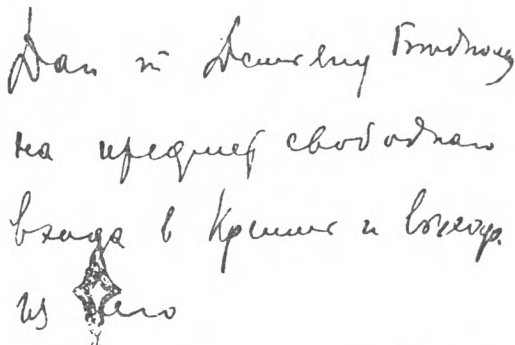 Дан т Демьяну Бедному
на предмет свободнаго
входа в Кремль и выхода
из него